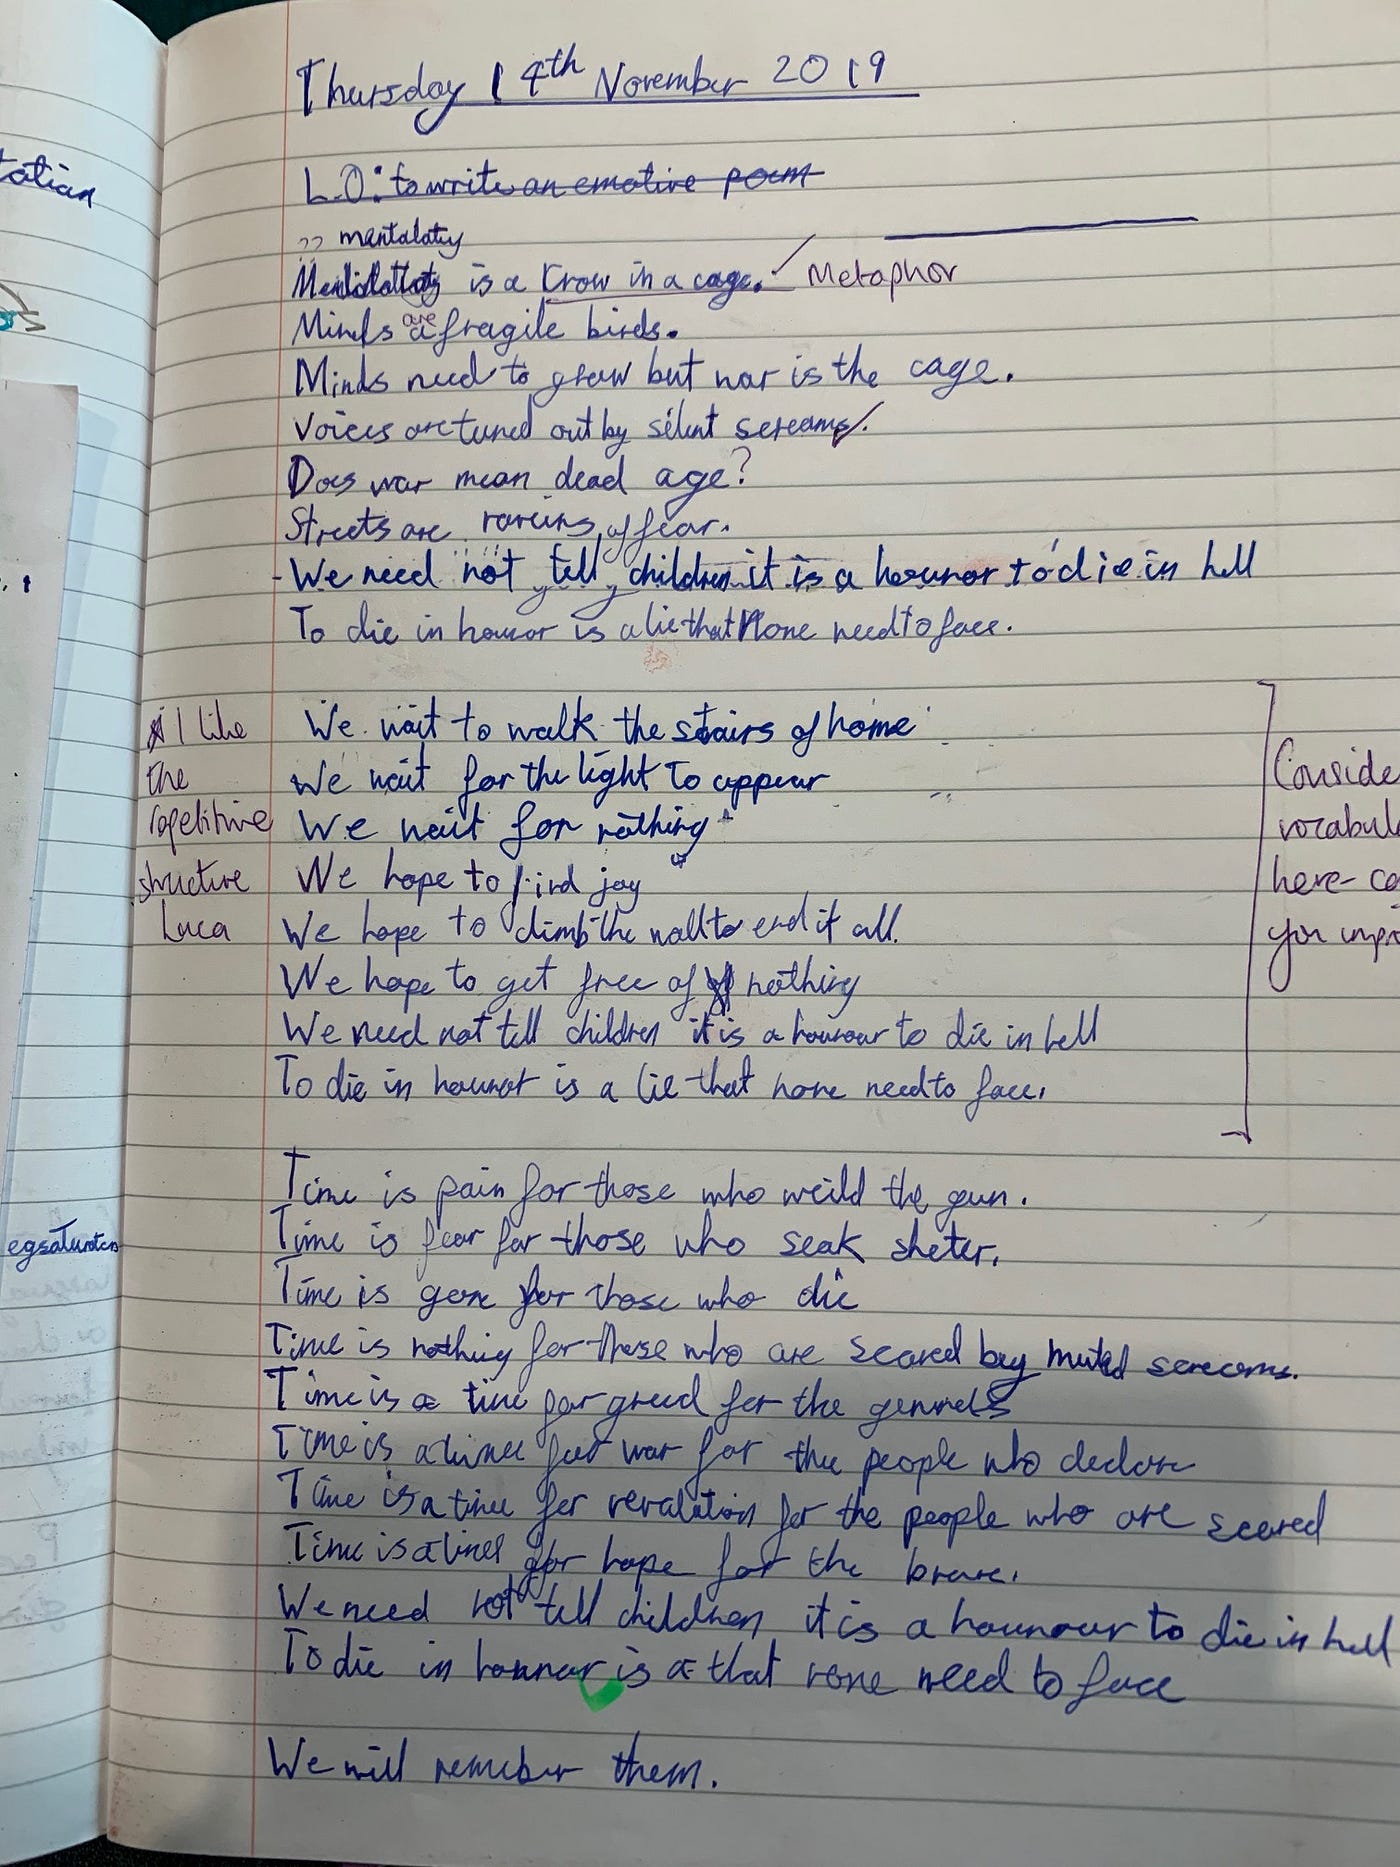 Thursday 14th November 2019
L.O: to write an emotive poem
?? mentalaty
is a Crow in a cage. Metaphor
Minds are fragile birds.
Minds need to grow but war is the cage.
Voices are tuned out by silent screams.
Does war mean dead age?
Streets are of fear.
- We need not tell children it is a hounor to die in hell
To die in hounor is a lie that None need to face.
We wait to walk the stairs of home
We wait for the light to appear
We wait for nothing
We hope to find joy
We hope to climb the wall to end it all.
We hope to get free of nothing
We need not tell children it is a hounour to die in hell
To die in hounor is a lie that none need to face.
I like
the
repetitive
structure
Luca
Conside
vocabul
here- co
you impro
Time is pain for those who weild the gun.
Time is fear for those who seak sheter.
Time is gone for those who die
Time is nothing for those who are scared by muted screams.
Time is a time for greed for the genrels
Time is a time for war for the people who declare
Time is a time for revalation for the people who are scared
Time is a time for hope for the brave.
We need not tell children it is a hounour to die in hell
To die in hounor is a that none need to face
We will remember them.
tation